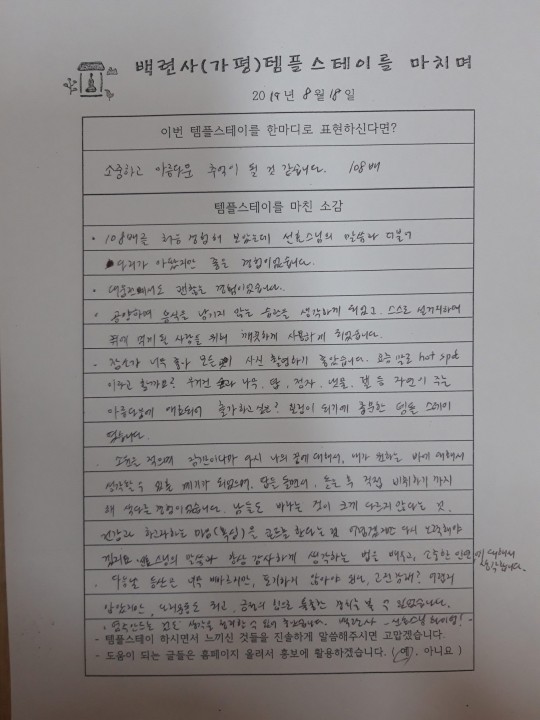 백련사(가평)템플스테이를 마치며
2019년 8월 18일
이번 템플스테이를 한마디로 표현하신다면?
소중하고 아름다운 추억이 될 것 같습니다. 108배
템플스테이를 마친 소감
· 108배를 처음 경험해 보았는데 선효스님의 말씀과 더불어
다리가 아팠지만 좋은 경험이었습니다.
· 에서도 괜찮은 경험이었습니다.
· 공양하며 음식을 남기지 않는 습관을 생각하게 되었고, 스스로 설거지하며
뒤에 먹게 될 사람을 위해 깨끗하게 사용하게 되었습니다.
· 장소가 너무 좋아 모든 사진 촬영하기 좋았습니다. 요즘 말로 hot spot
이라고 할까요? 나무, 탑, 정자, 냇물, 절 등 자연이 주는
아름다움에 매료되어 출가하고 싶은? 심정이 되기에 충분한 템플 스테이
였습니다.
· 소원을 적으며 잠깐이나마 다시 나의 꿈에 대하여, 내가 원하는 바에 대해서
생각할 수 있는 계기가 되었으며, 탑을 돌면서, 돌을 직접 까지
꽤 색다른 경험이었습니다. 남들도 바라는 것이 크게 다르지 않다는 것,
건강과 하고자하는 마음(욕심)을 한다는 것 어렵겠지만 다시 노력해야
스님의 말씀과 항상 감사하게 생각하는 법을 배우고, 소중한 인연에 대해서 생각합니다.
· 등산은 너무 빠르지만, 포기하지 않아야 되나,
경치를 볼 수 있었습니다.
· 염주만드는 것도 생각을 정리할 수 있어 좋았습니다. 백련사 - 선효스님 화이팅!
- 템플스테이 하시면서 느끼신 것들을 진솔하게 말씀해주시면 고맙겠습니다.
- 도움이 되는 글들은 홈페이지 올려서 홍보에 활용하겠습니다. (예, 아니요)